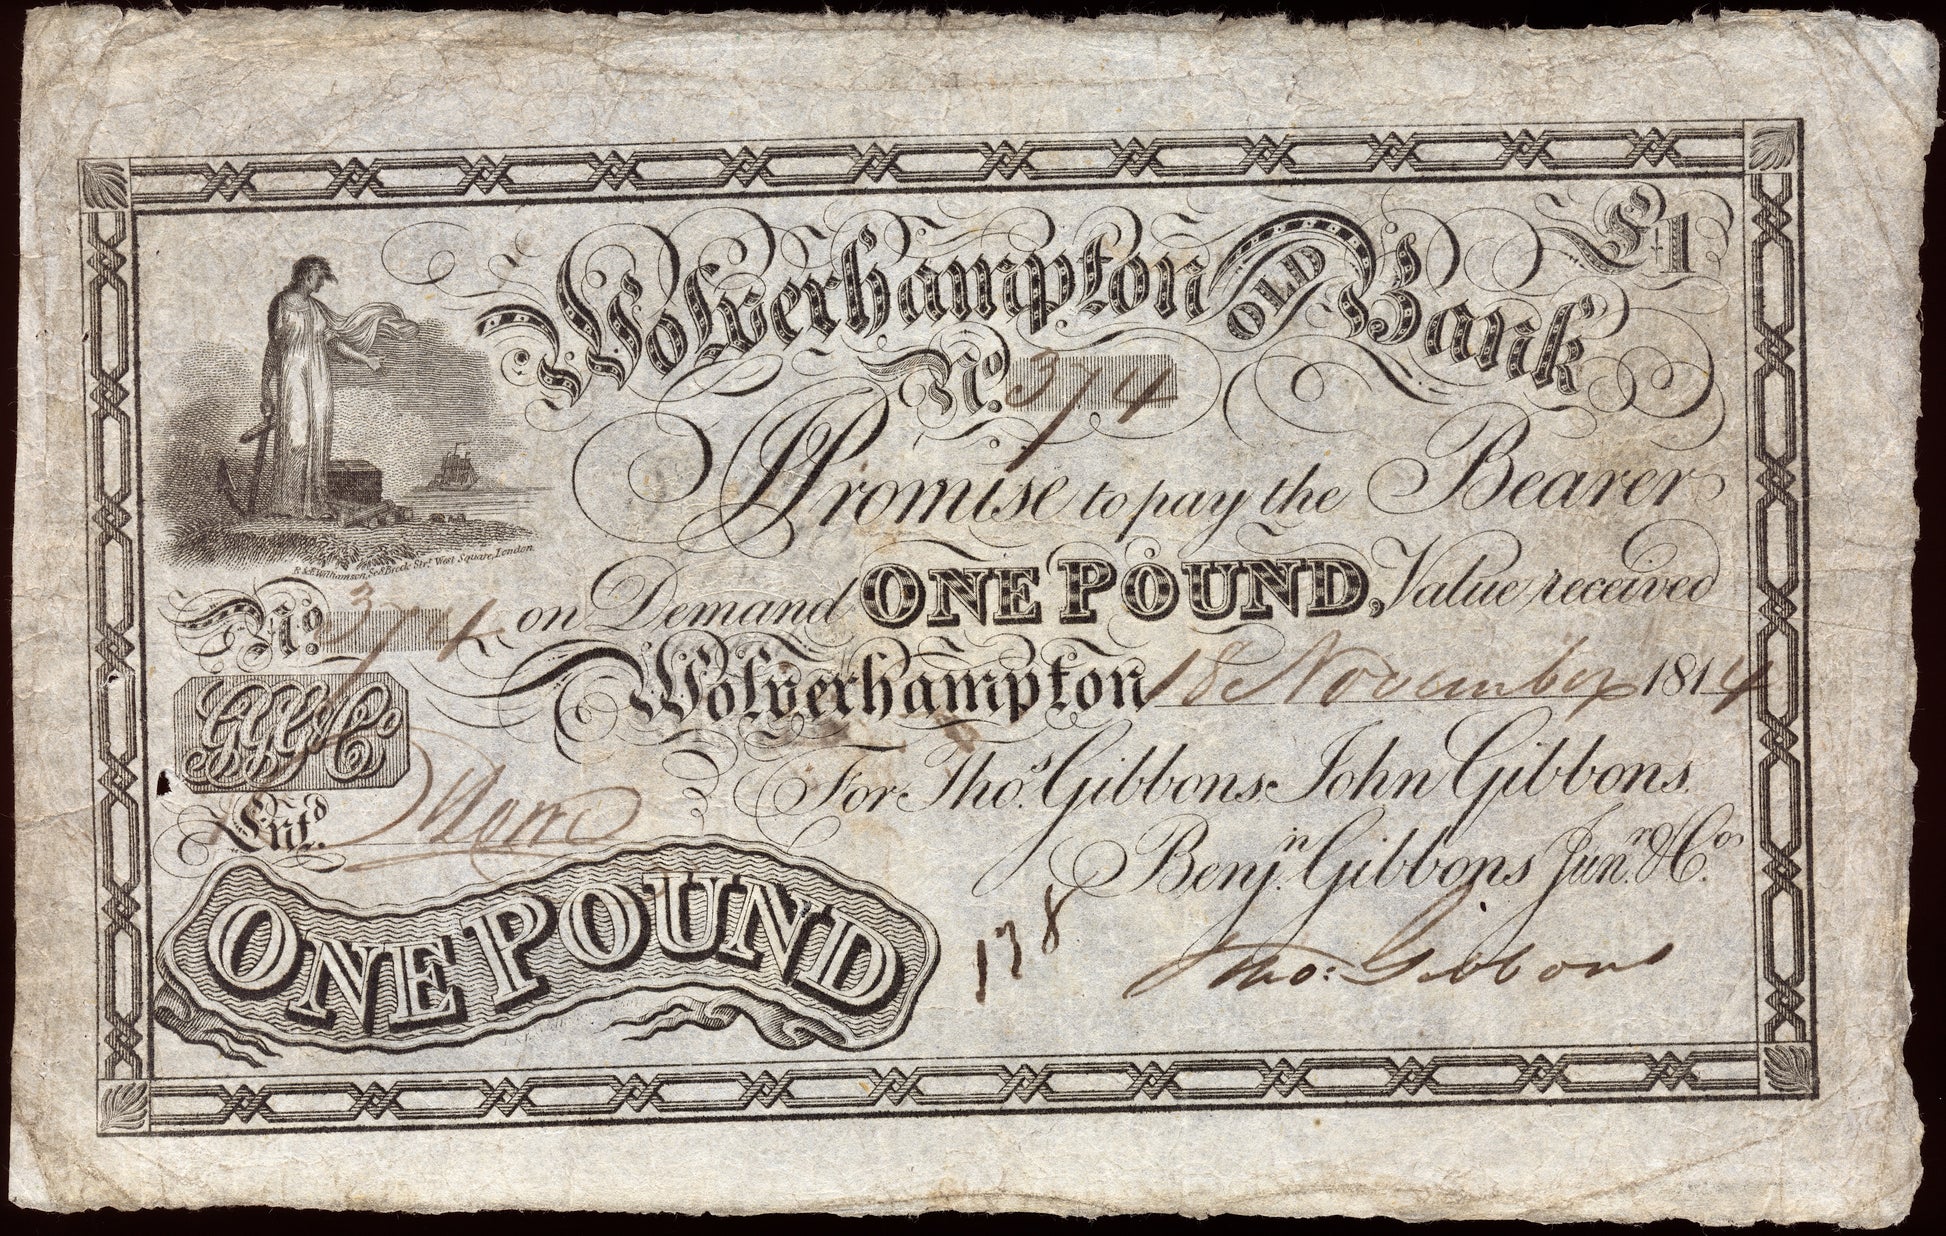 £1
Wolverhampton OLD Bank
No. 374
I Promise to pay the Bearer
on Demand ONE POUND, Value received
R & E Williamson, Sc. 8 Brook Strt. West Square, London
No. 374
Wolverhampton 18 November 1814
GGG & Co
For Thos. Gibbons. John Gibbons.
Benjn. Gibbons Junr. & Co.
Entd.
138
Thos: Gibbons
ONE POUND